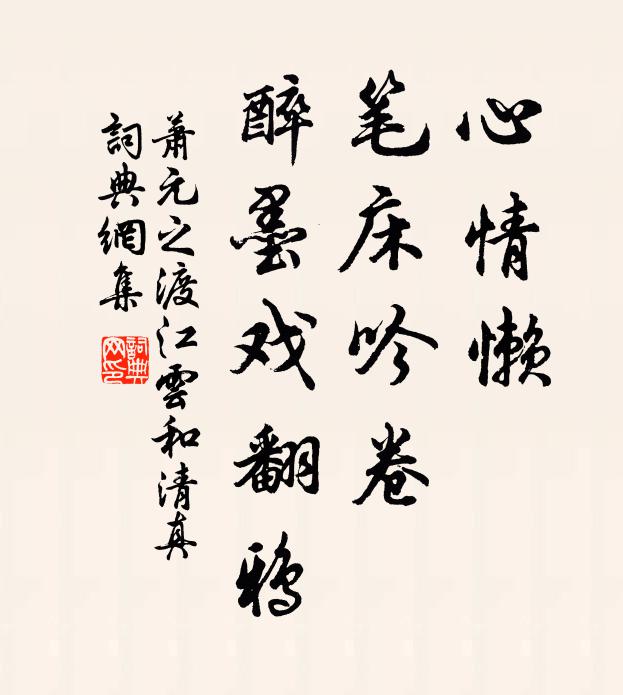 心情懒
笔床吟卷
醉墨戏翻鸦
萧元之渡江雲和清真
詞典網集
詞典网印